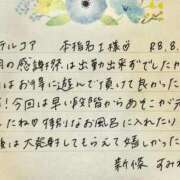 デルコア 本指名I様 R8.8.
月の感謝祭は出勤出来ずでしたが
はお時に遊んで頂けて良かった
！今回は早い段階からあそこが元
したね 特別なお風呂に入れたり
後は大発射してもらえて嬉しか
新保 すみれ